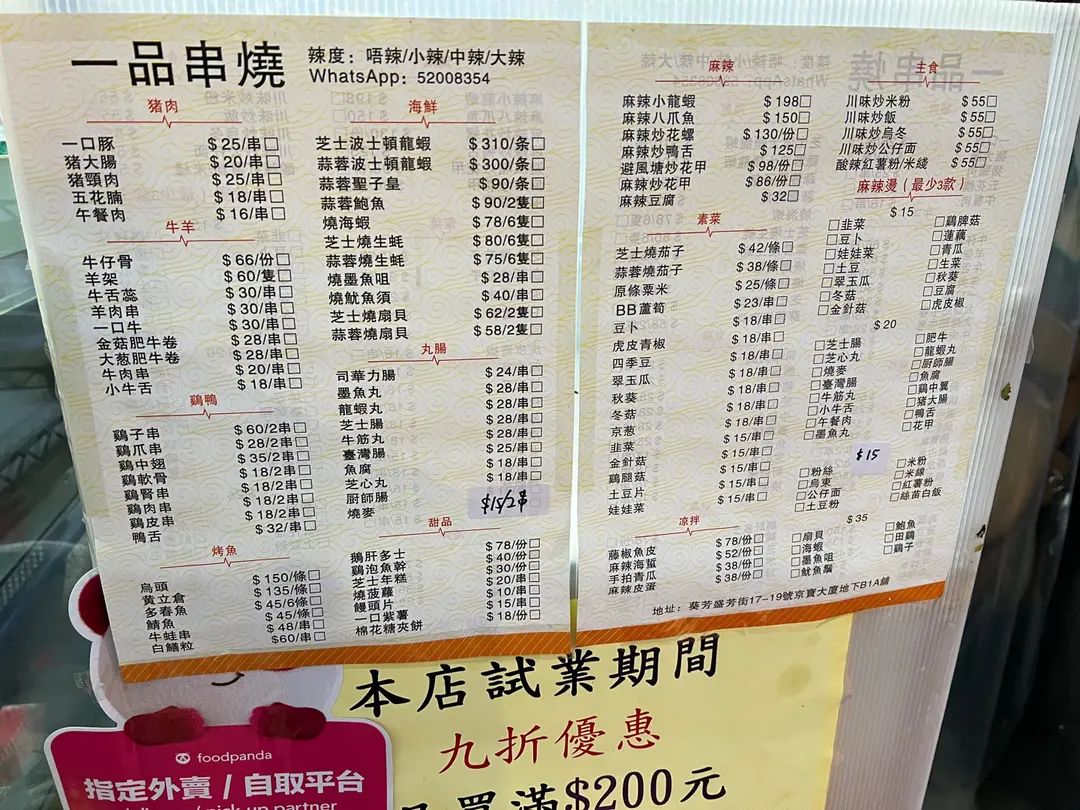 一品串燒
辣度：唔辣/小辣/中辣/大辣
WhatsApp：52008354
豬肉
一口豚 $25/串
豬大腸 $20/串
豬頸肉 $25/串
五花腩 $18/串
午餐肉 $16/串
牛羊
牛仔骨 $66/份
羊架 $60/隻
牛舌蕊 $30/串
羊肉串 $30/串
一口牛 $30/串
金菇肥牛卷 $28/串
大葱肥牛卷 $28/串
牛肉串 $20/串
小牛舌 $18/串
鷄鴨
鷄子串 $60/2串
鷄爪串 $28/2串
鷄中翅 $35/2串
鷄軟骨 $18/2串
鷄腎串 $18/2串
鷄肉串 $18/2串
鷄皮串 $18/2串
鴨舌 $32/串
烤魚
烏頭 $150/條
黃立倉 $135/條
多春魚 $45/6條
鯖魚 $45/條
牛蛙串 $48/串
白鱔粒 $60/串
海鮮
芝士波士頓龍蝦 $310/条
蒜蓉波士頓龍蝦 $300/条
蒜蓉聖子皇 $90/条
蒜蓉鮑魚 $90/2隻
燒海蝦 $78/6隻
芝士燒生蚝 $80/6隻
蒜蓉燒生蚝 $75/6隻
燒墨魚咀 $28/串
燒魷魚須 $40/串
芝士燒扇貝 $62/2隻
蒜蓉燒扇貝 $58/2隻
丸腸
司華力腸 $24/串
墨魚丸 $28/串
龍蝦丸 $28/串
芝士腸 $28/串
牛筋丸 $28/串
臺灣腸 $25/串
魚腐 $18/串
芝心丸 $18/串
廚師腸
燒麥
$15/2串
甜品
鵝肝多士 $78/份
鷄泡魚幹 $40/份
芝士年糕 $30/份
燒菠蘿 $20/串
饅頭片 $10/串
一口紫薯 $15/串
棉花糖夾餅 $18/份
麻辣
麻辣小龍蝦 $198
麻辣八爪魚 $150
麻辣炒花螺 $130/份
麻辣炒鴨舌 $125
避風塘炒花甲 $98/份
麻辣炒花甲 $86/份
麻辣豆腐 $32
素菜
芝士燒茄子 $42/條
蒜蓉燒茄子 $38/條
原條粟米 $25/條
BB蘆筍 $23/串
豆卜 $18/串
虎皮青椒 $18/串
四季豆 $18/串
翠玉瓜 $18/串
秋葵 $18/串
冬菇 $18/串
京葱 $18/串
韭菜 $15/串
金針菇 $15/串
鷄腿菇 $15/串
土豆片 $15/串
娃娃菜
凉拌
藤椒魚皮 $78/份
麻辣海蜇 $52/份
手拍青瓜 $38/份
麻辣皮蛋 $38/份
主食
川味炒米粉 $55
川味炒飯 $55
川味炒烏冬 $55
川味炒公仔面 $55
酸辣紅薯粉/米綫 $55
麻辣燙（最少3款）
$15
韭菜 鷄牌菇
豆卜 蓮藕
娃娃菜 青瓜
土豆 生菜
翠玉瓜 秋葵
冬菇 豆腐
金針菇 虎皮椒
$20
芝士腸 肥牛
芝心丸 龍蝦丸
燒麥 廚師腸
臺灣腸 魚腐
牛筋丸 鷄中翼
小牛舌 豬大腸
午餐肉 鴨舌
墨魚丸 花甲
$15
粉絲 米粉
烏東 米線
公仔面 紅薯粉
土豆粉 絲苗白飯
$35
扇貝 鮑魚
海蝦 田鷄
墨魚咀 鷄子
魷魚鬚
地址：葵芳盛芳街17-19號京寶大廈地下B1A舖
本店試業期間
九折優惠
滿$200元
foodpanda
指定外賣 / 自取平台
pick-up partner